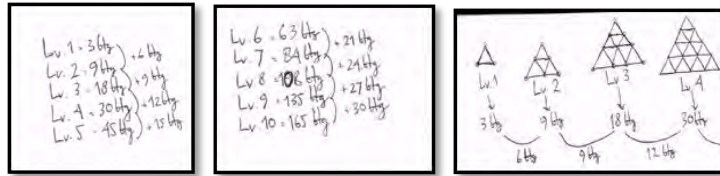 Lv. 1 = 3 btg
Lv. 2 = 9 btg
Lv. 3 = 18 btg
Lv. 4 = 30 btg
Lv. 5 = 45 btg
+6 btg
+9 btg
+12 btg
+15 btg
Lv. 6 = 63 btg
Lv. 7 = 84 btg
Lv. 8 = 108 btg
Lv. 9 = 135 btg
Lv. 10 = 165 btg
+21 btg
+24 btg
+27 btg
+30 btg
Lv. 1 Lv. 2 Lv. 3 Lv. 4
3 btg 9 btg 18 btg 30 btg
6 btg 9 btg 12 btg